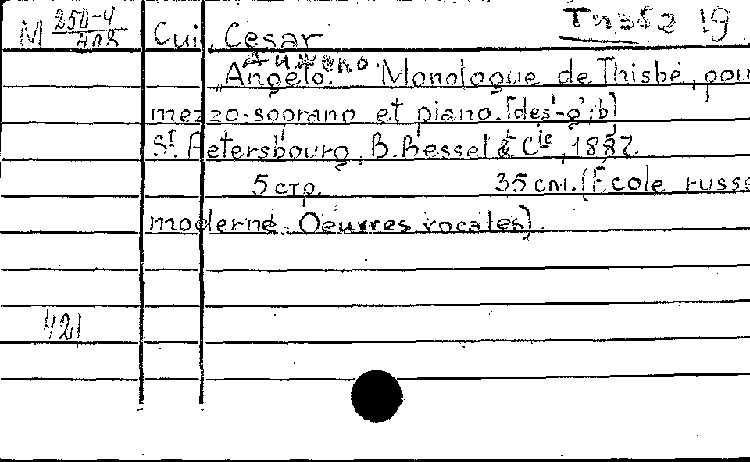 M 250-4/708 Cui, César 19
Анджело.
„Angelo." Monologue de Thisbé, pour
mezzo-soprano et piano. [des'-g'';b]
St. Petersbourg, B. Bessel & Cie, 1887.
5 стр. 35 см. (École russe
moderne. Oeuvres vocales).
421